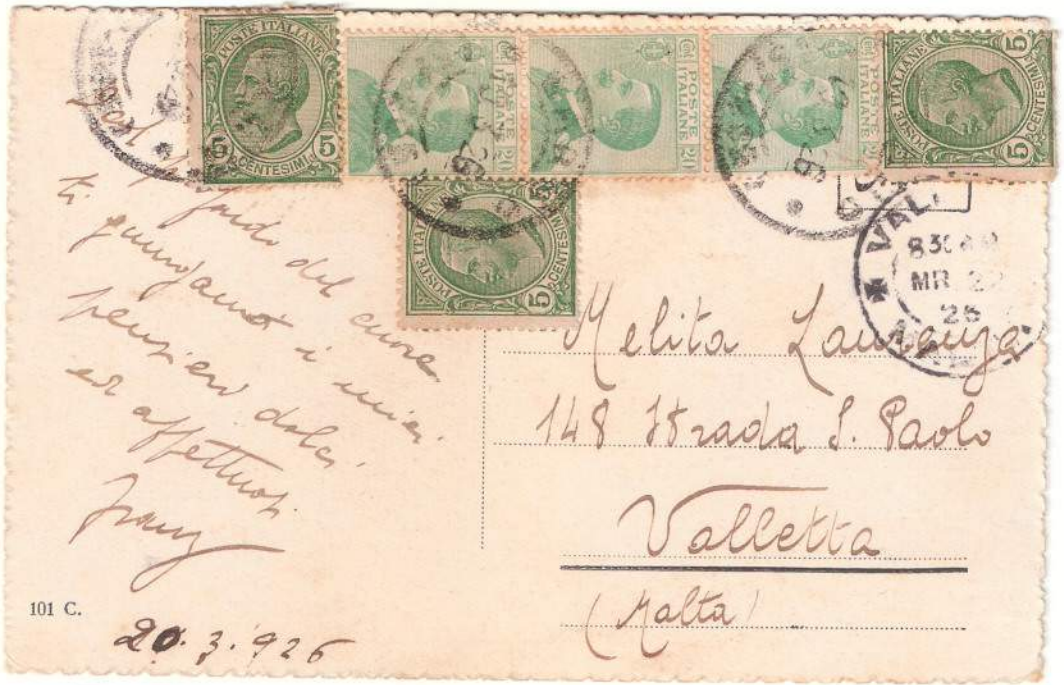 POSTE ITALIANE
5 CENTESIMI 5
POSTE ITALIANE
Ct 20
POSTE ITALIANE
Ct 20
POSTE ITALIANE
Ct 20
POSTE ITALIANE
5 CENTESIMI 5
POSTE ITALIANE
5 CENTESIMI 5
VAL
8 30 AM
MR 22
26
Dal profondo del cuore
ti giungano i miei
pensieri dolci
ed affettuosi.
Franz
101 C.
20.3.926
Melita Laurenza
148 Strada S. Paolo
Valletta
(Malta)